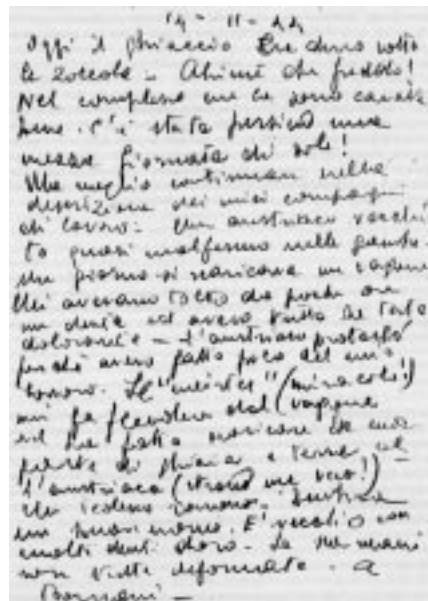 14 - 11 - 44
Oggi il ghiaccio era duro sotto
le zoccole - Ahimè che freddo!
Nel complesso me la sono cavata
bene. C'è stata persino una
mezza giornata di sole!
Ma meglio continuare nella
descrizione dei miei compagni
di lavoro - Un austriaco vecchiet
to quasi malfermo sulle gambe.
Un giorno si scaricava un vagone
Mi avevano tolto da poche ore
un dente ed avevo tutta la testa
dolorante - L'austriaco protestò
perché avevo fatto poco del mio
lavoro. Il "meister" (miracolo!)
mi fa scendere dal vagone
ed ha fatto scaricare la mia
parte di ghiaia e terra al
l'austriaco (strano ma vero!)
Un tedesco
un E' vecchio con
molti denti d'oro - Le mani
son tutte deformate. a
Domani -